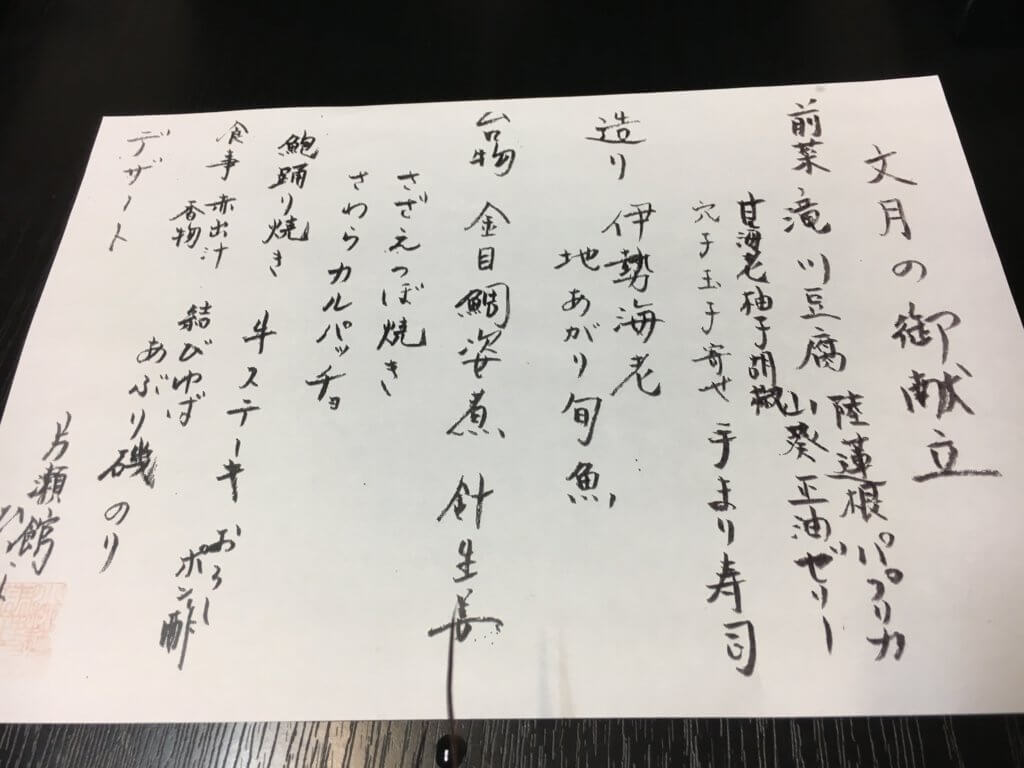 文月の御献立
前菜 滝川豆腐 陸蓮根 パプリカ
山葵正油ゼリー
甘海老柚子胡椒
穴子玉子寄せ 手まり寿司
造り 伊勢海老
地あがり旬魚
台物 金目鯛姿煮 針生姜
さざえつぼ焼き
さわらカルパッチョ
鮑踊り焼き 牛ステーキ おろしポン酢
食事 赤出汁 結びゆば
香物 あぶり磯のり
デザート
片瀬館